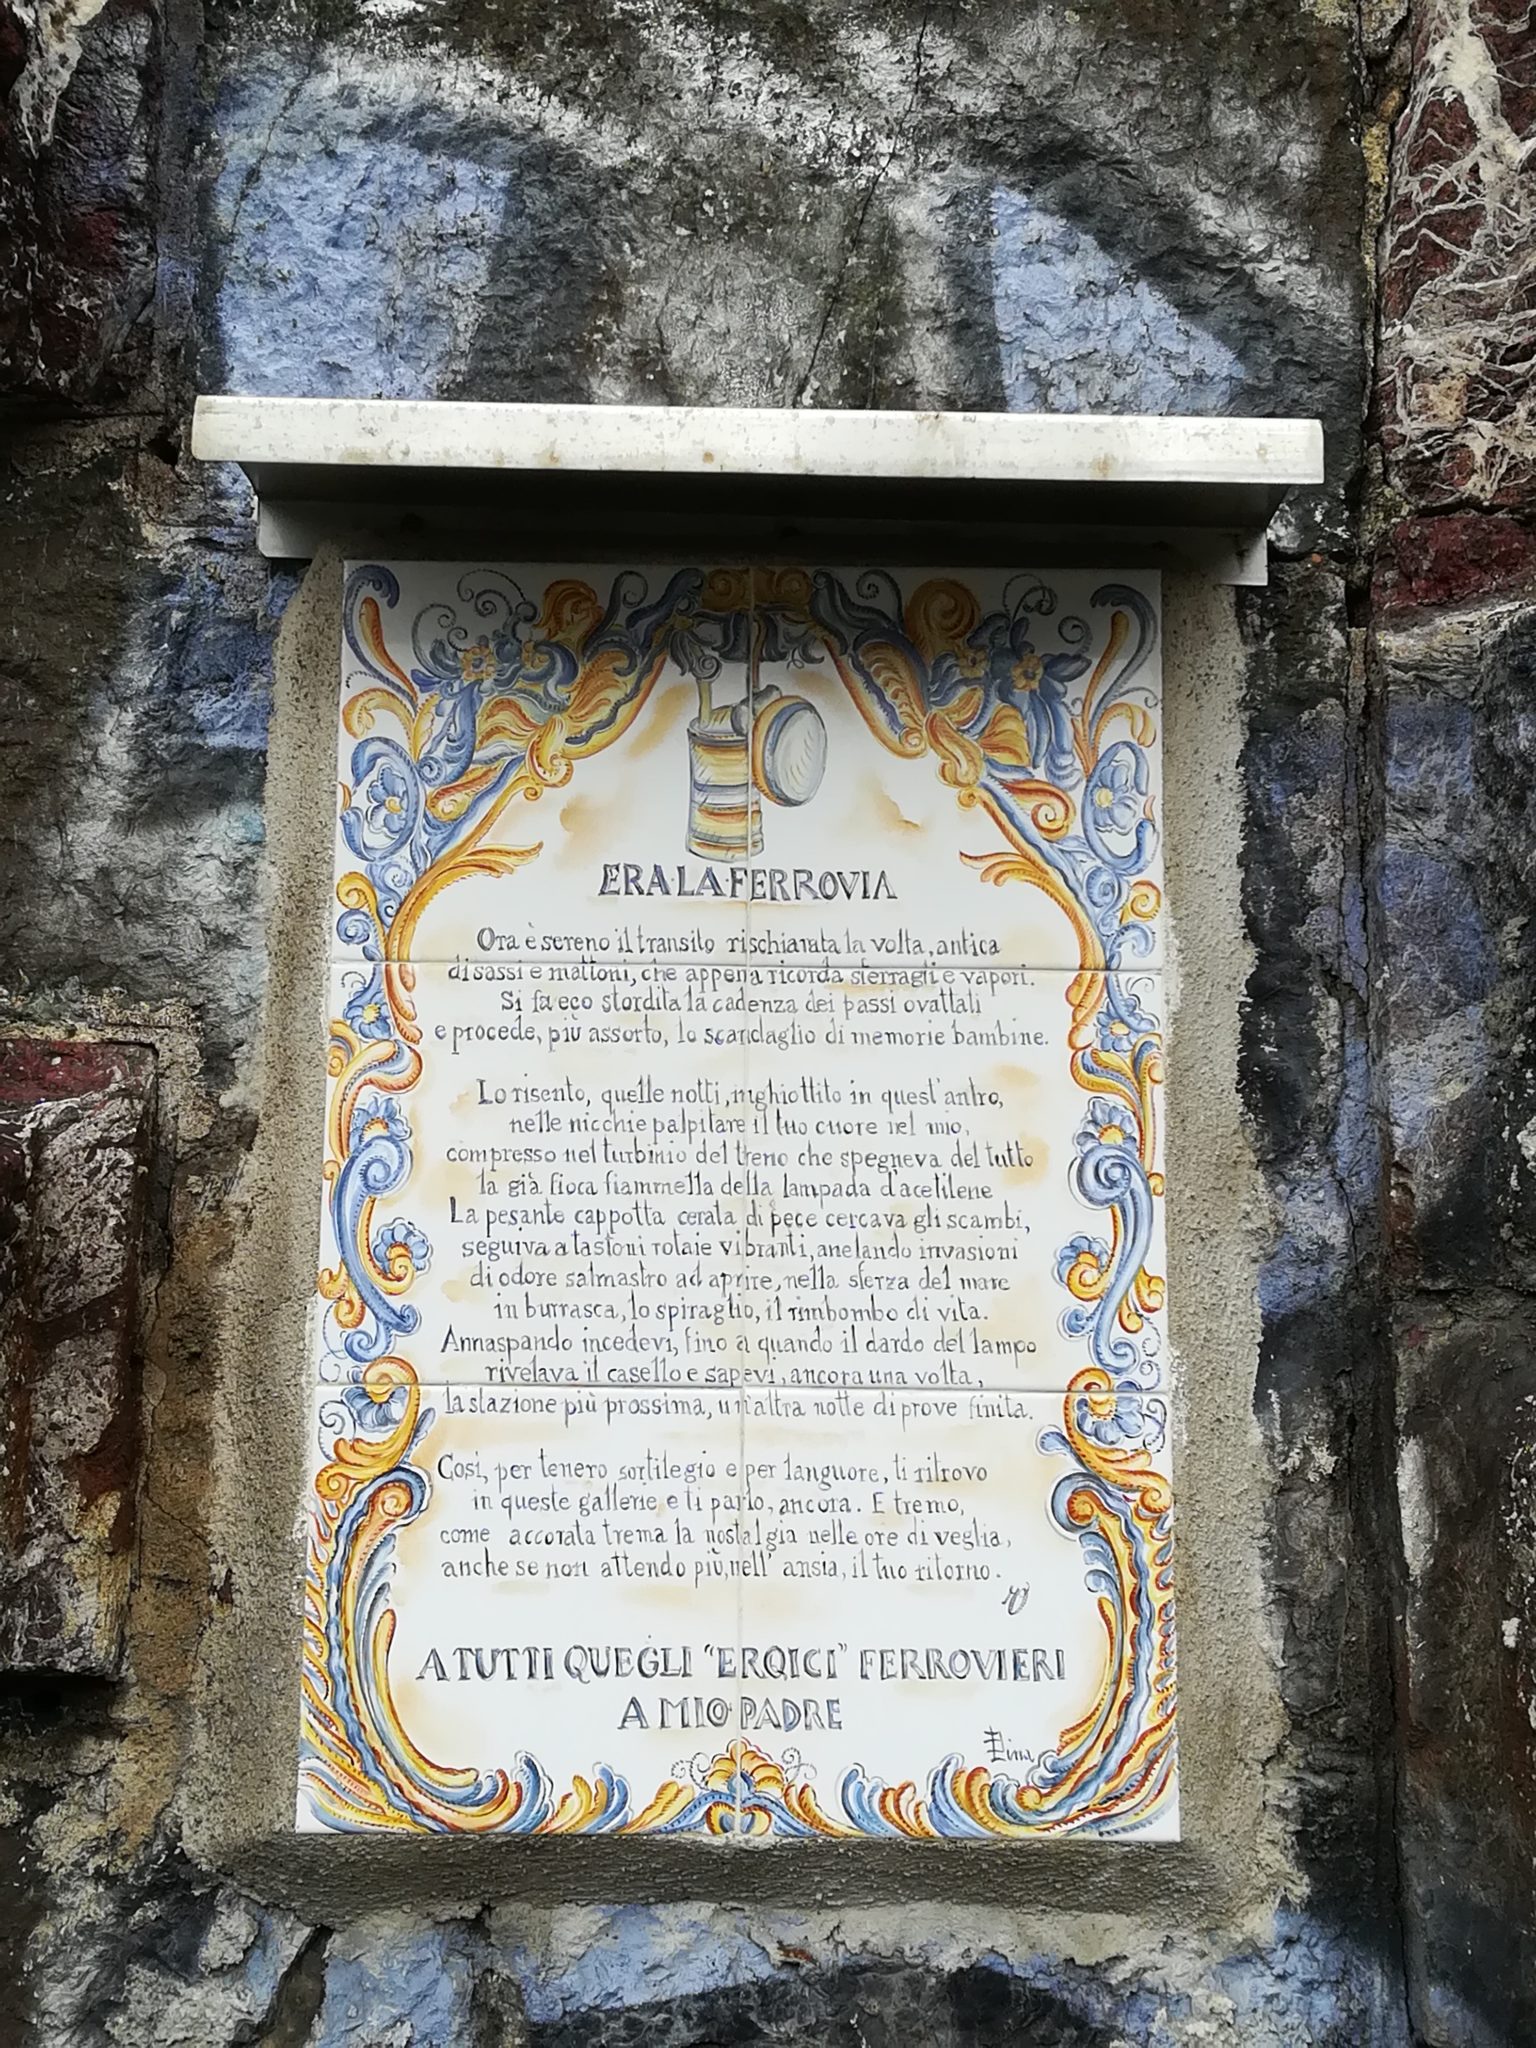 ERA·LA·FERROVIA
Ora è sereno il transito rischiarata la volta, antica
di sassi e mattoni, che appena ricorda sferragli e vapori.
Si fa eco stordita la cadenza dei passi ovattati
e procede, più assorto, lo scandaglio di memorie bambine.
Lo risento, quelle notti, inghiottito in quest'antro,
nelle nicchie palpitare il tuo cuore nel mio,
compresso nel turbinio del treno che spegneva del tutto
la già fioca fiammella della lampada d'acetilene
La pesante cappotta cerata di pece cercava gli scambi,
seguiva a tastoni rotaie vibranti, anelando invasioni
di odore salmastro ad aprire, nella sferza del mare
in burrasca, lo spiraglio, il rimbombo di vita.
Annaspando incedevi, fino a quando il dardo del lampo
rivelava il casello e sapevi, ancora una volta,
la stazione più prossima, un'altra notte di prove finita.
Così, per tenero sortilegio e per languore, ti ritrovo
in queste gallerie e ti parlo, ancora. E tremo,
come accorata trema la nostalgia nelle ore di veglia,
anche se non attendo più, nell'ansia, il tuo ritorno.
A TUTTI QUEGLI "EROICI" FERROVIERI
A MIO PADRE